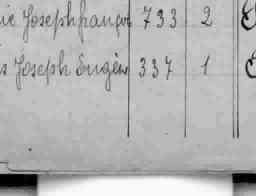 ie Joseph françois 733 2
s Joseph Eugène 337 1